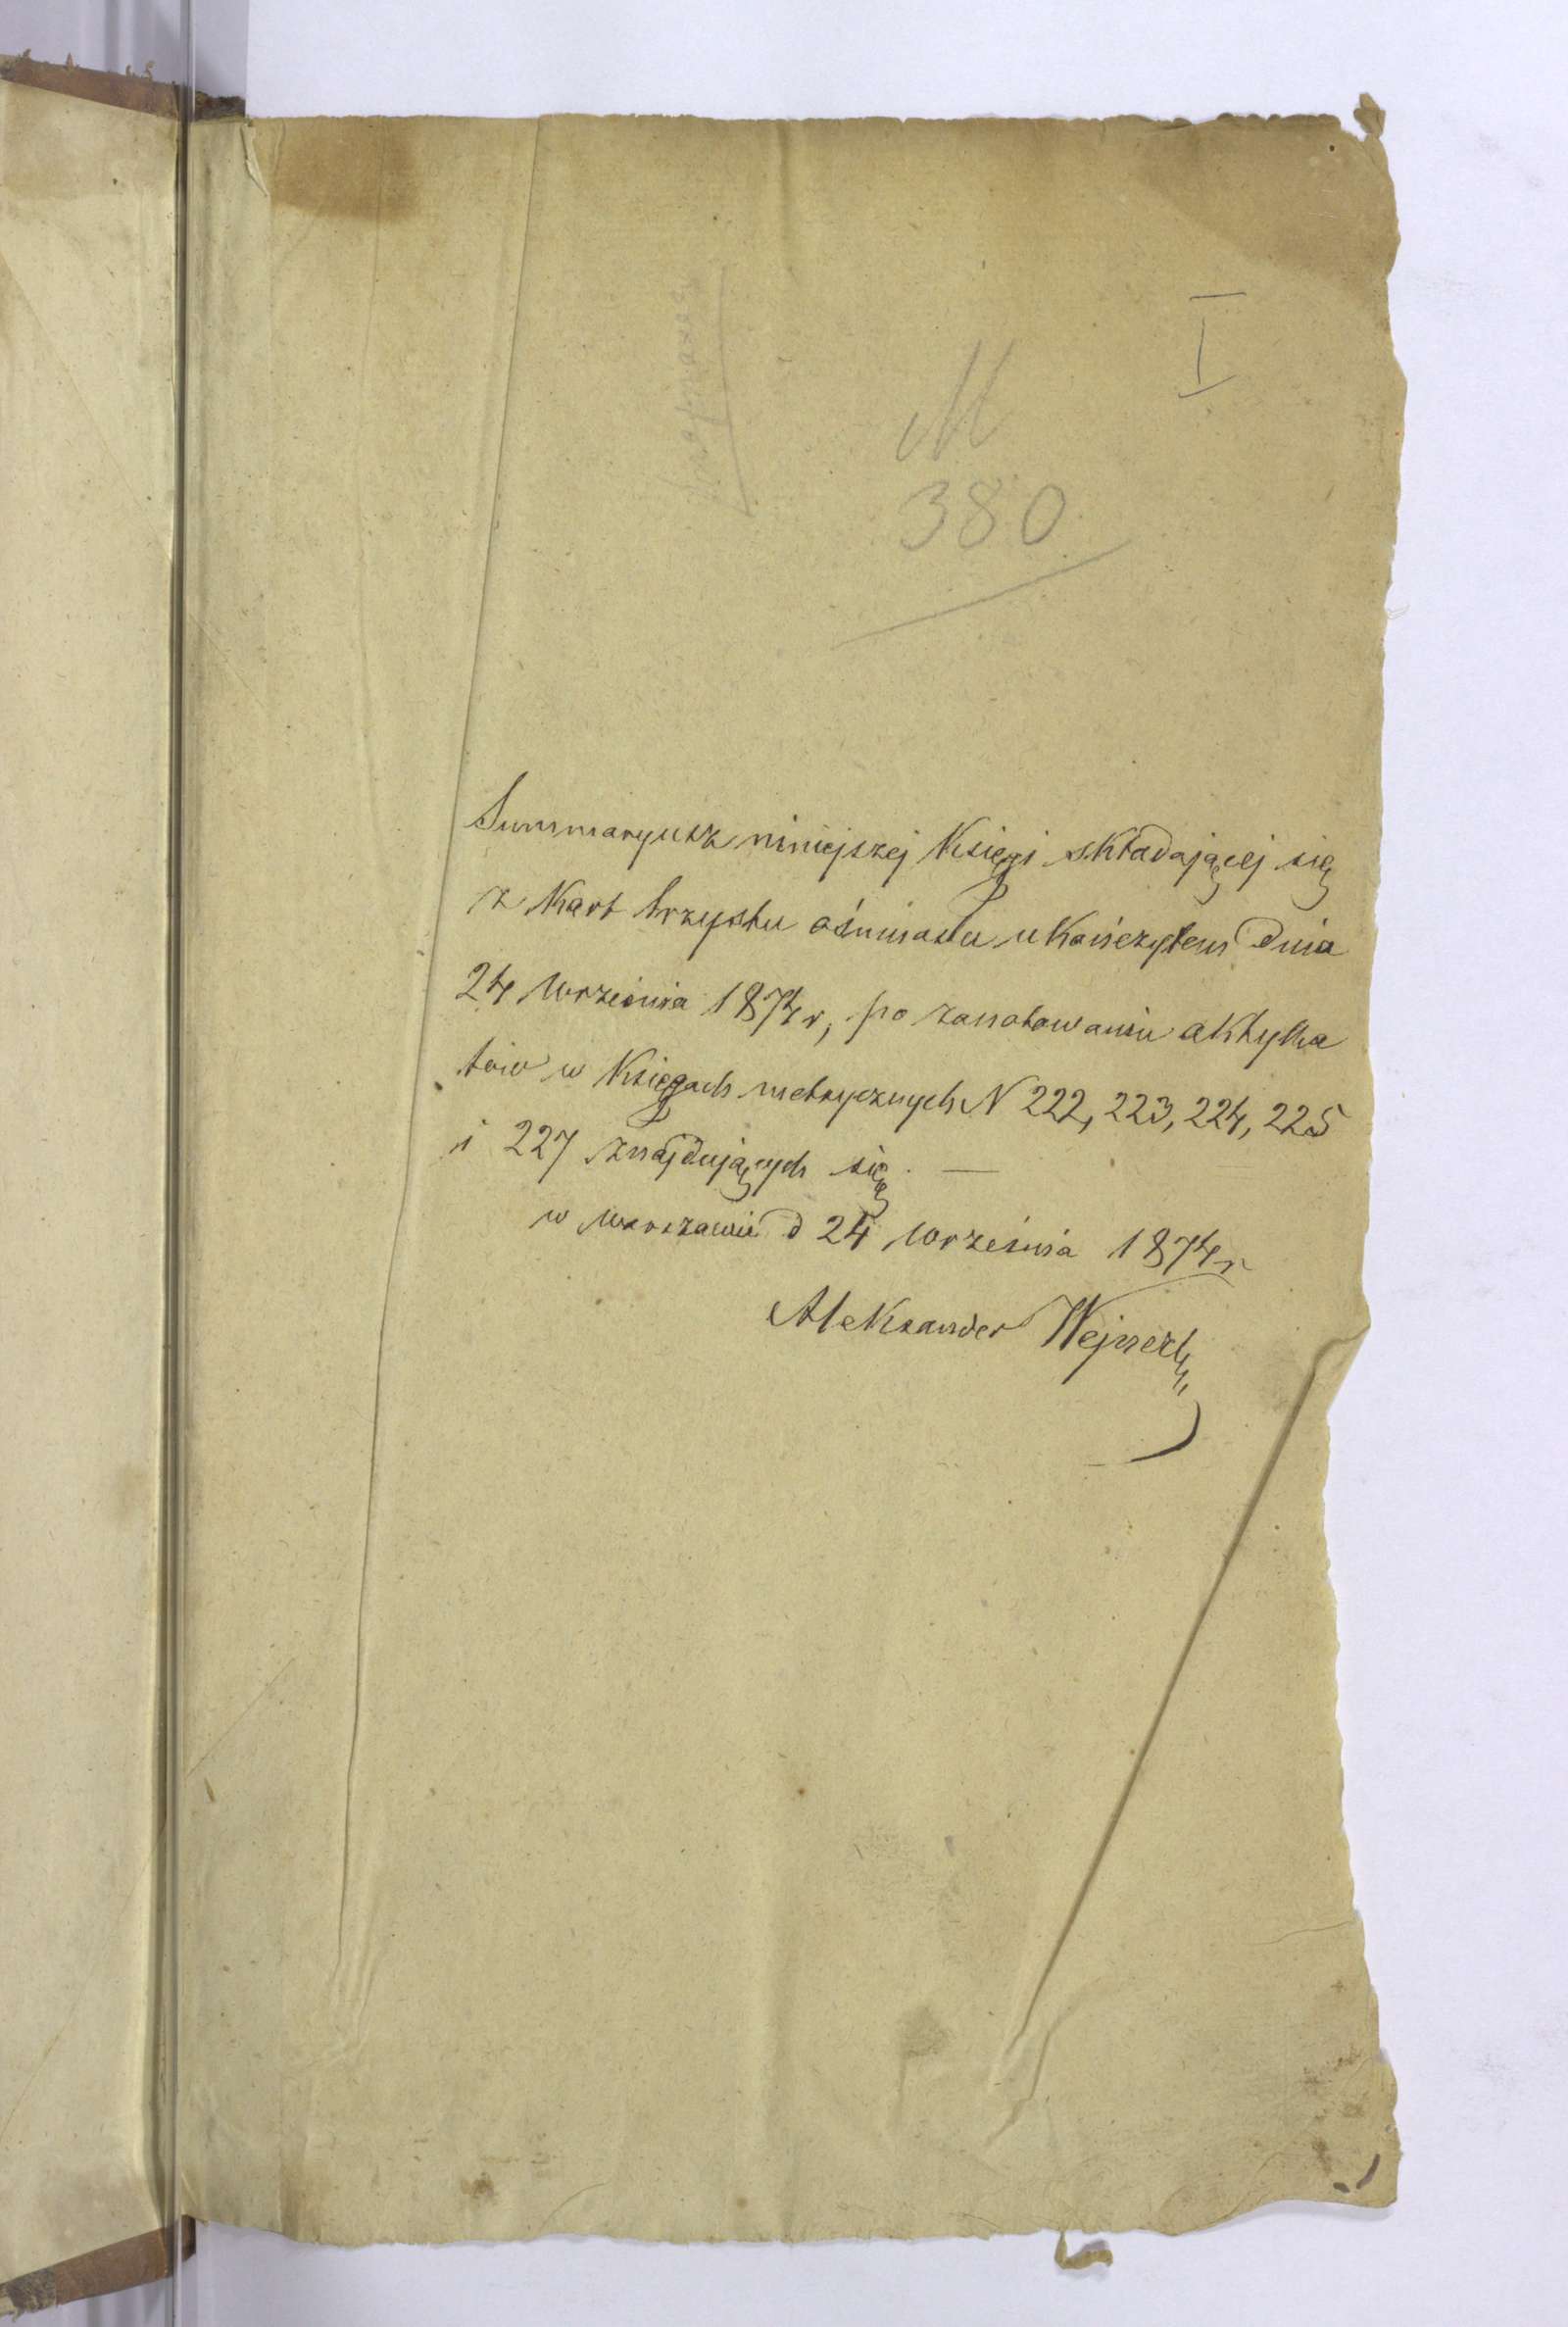 I
M
380
Summaryusz niniejszej Księgi składającej się
z Kart trzystu ośmiastu ukończyłem dnia
24 Września 1874 r, po zanotowaniu aktyka
tów w Księgach metrycznych N 222, 223, 224, 225
i 227 znajdujących się. —
w Warszawie d 24 Września 1874 r
Aleksander Wejnert